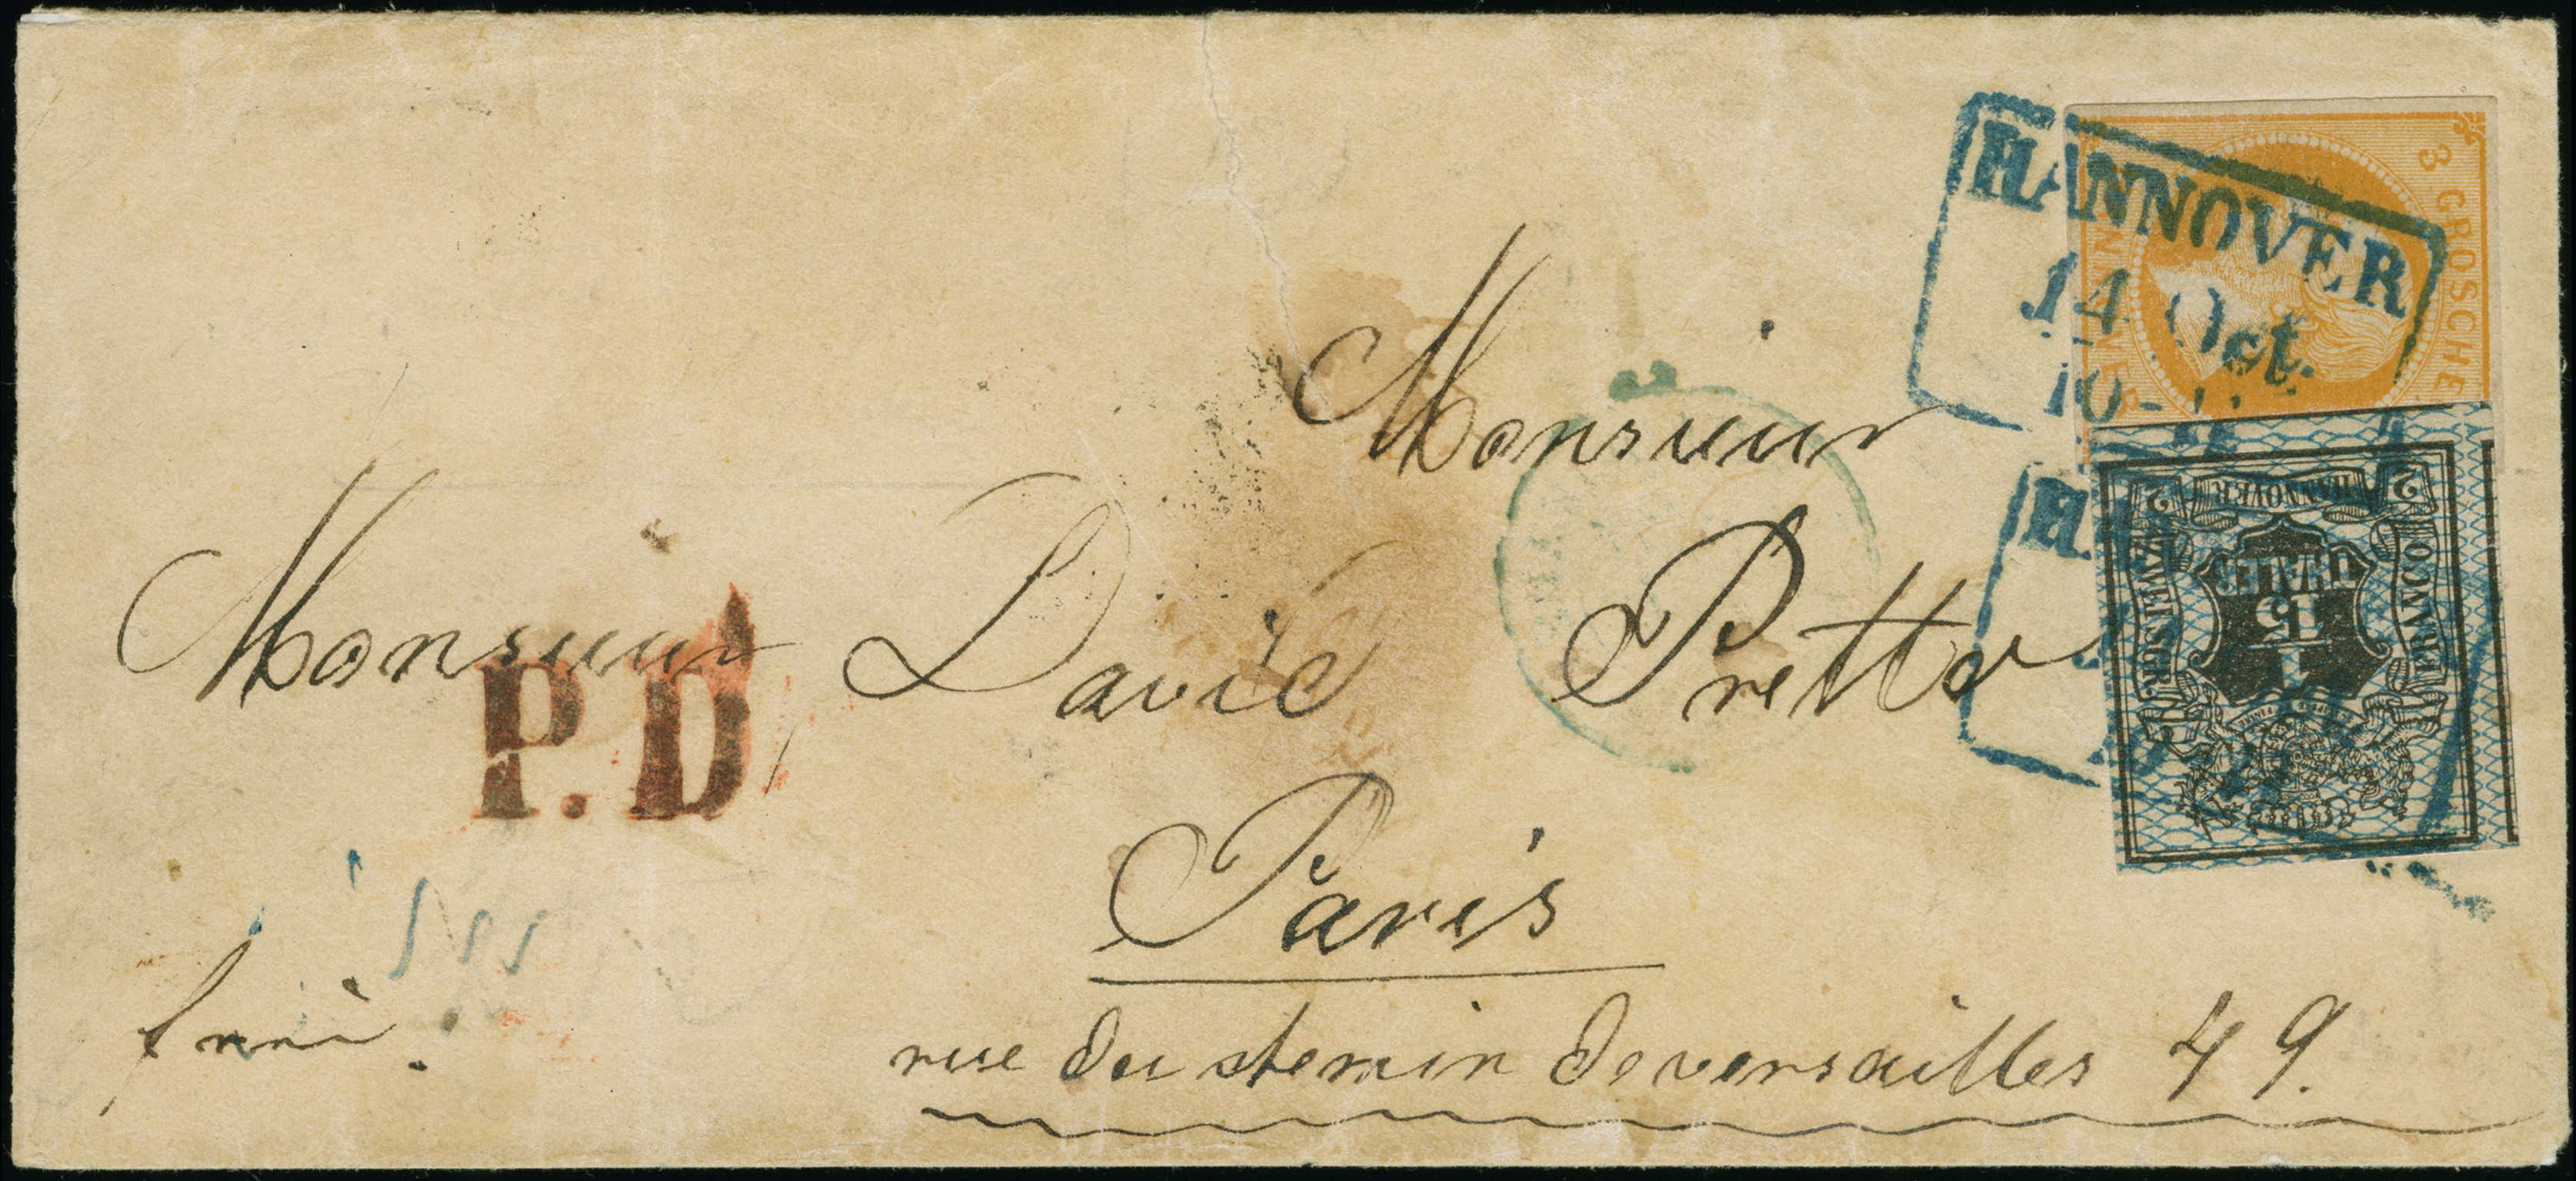 HANNOVER
14 Oct.
10-
3 GROSCHE
HANNOVER
2
2
FRANCO
ZWEI SGR.
1
15
THALER
Monsieur
Monsieur David Pretto
P.D.
Paris
rue du chemin de versailles 49.